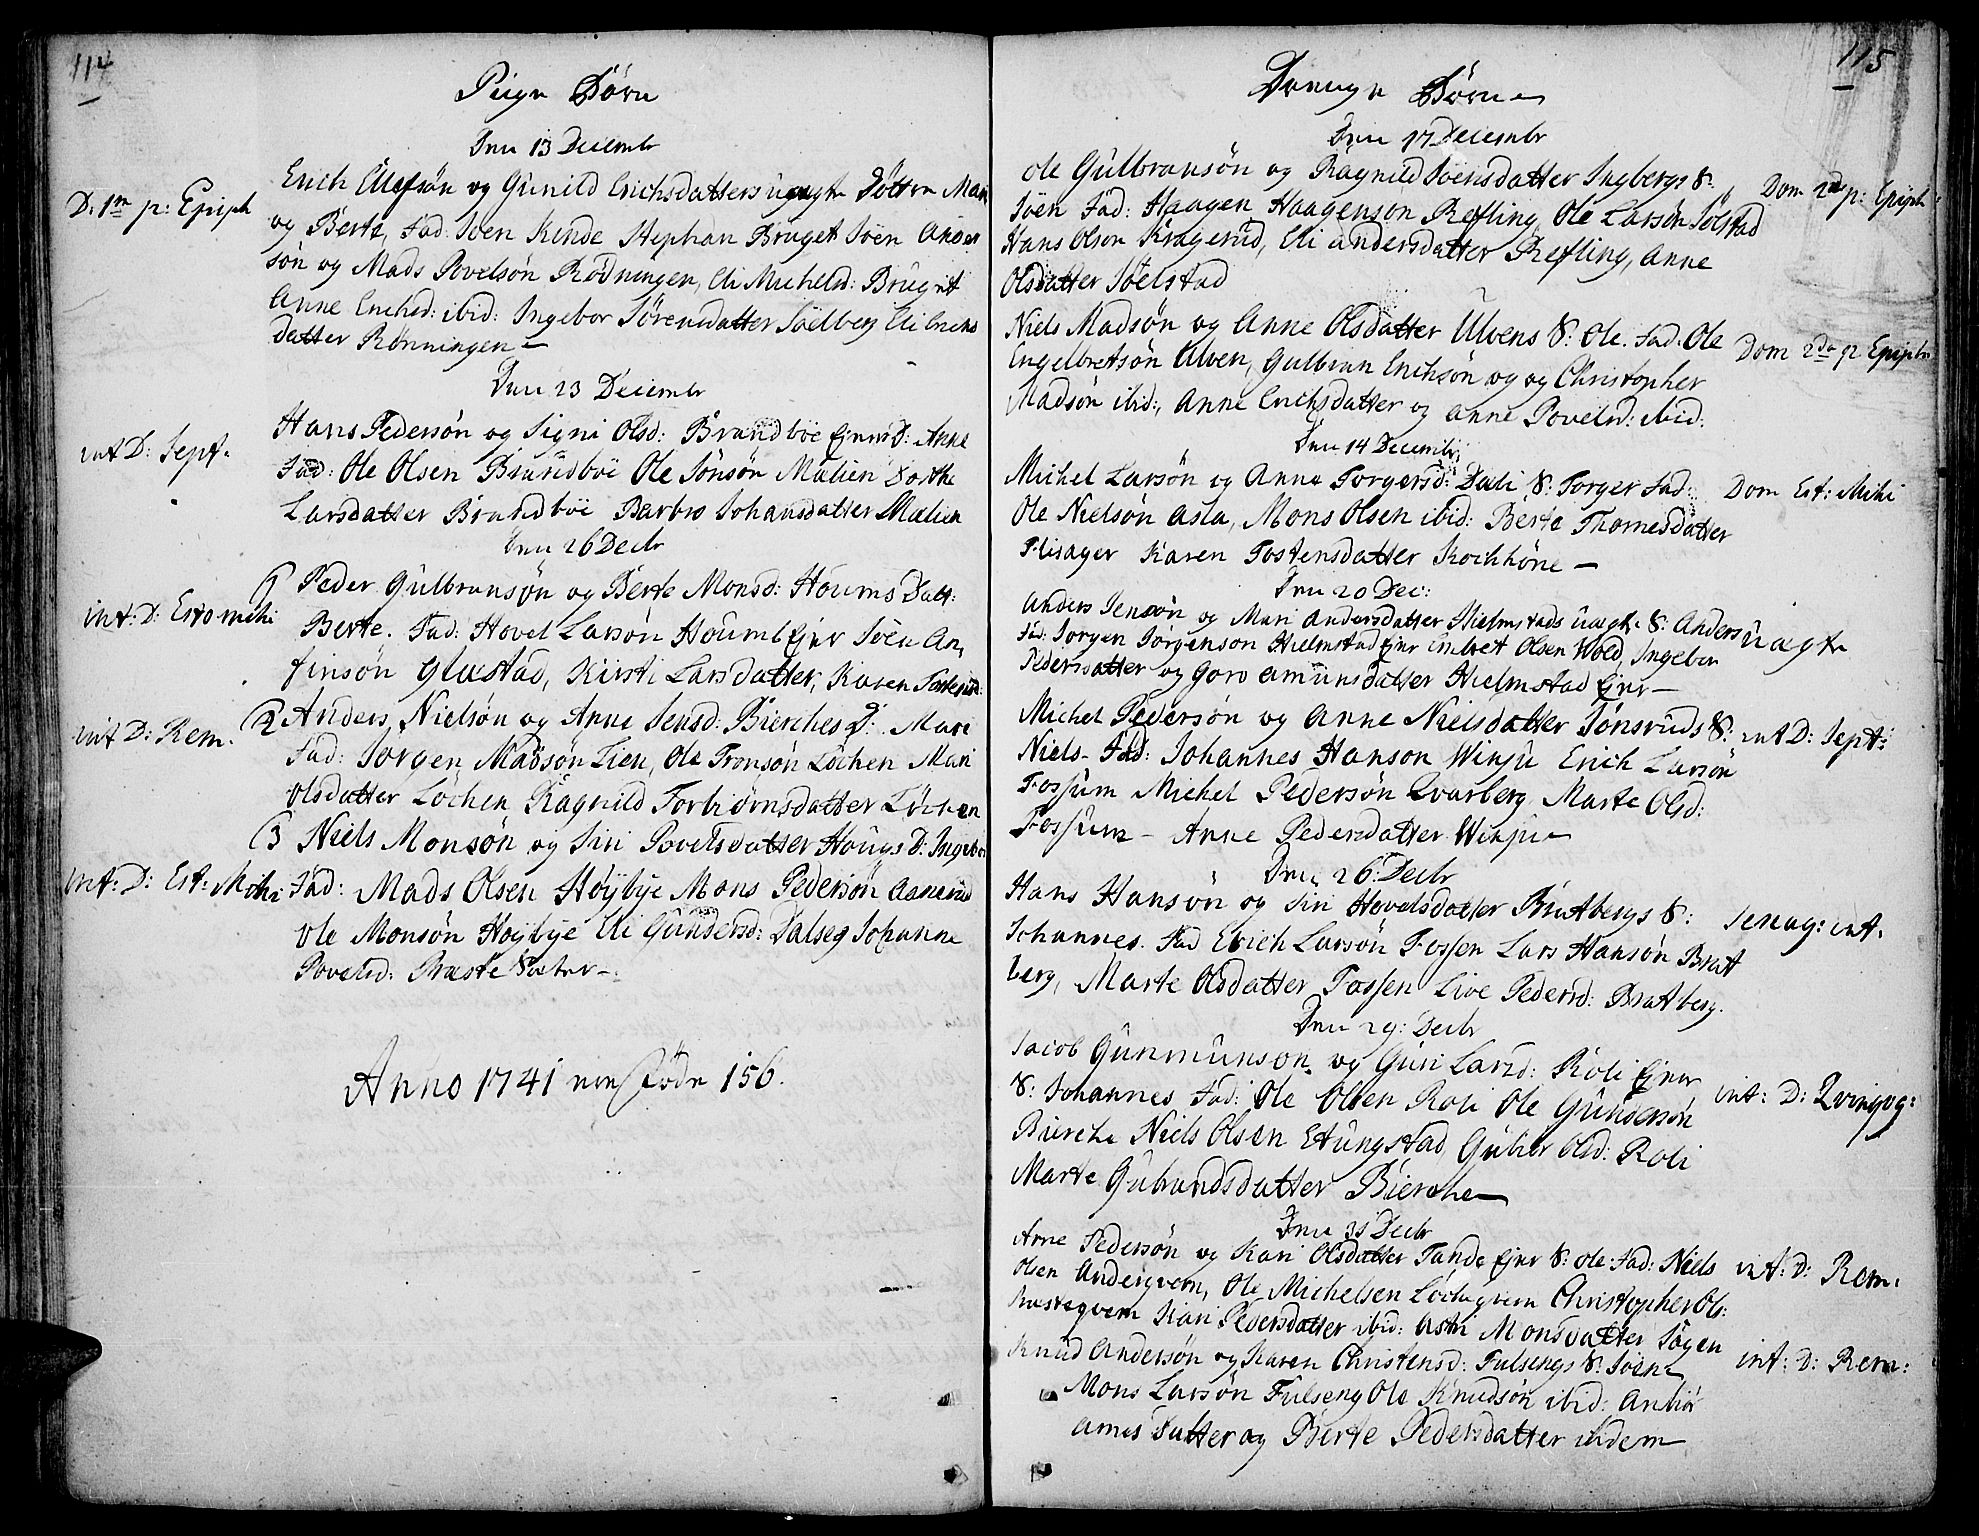 114
Piige Börn
Den 13 Decembr
D: 1m p: Epiph
Erich Ellefsön og Gunild Erichsdatters uægte Döttre Mari
og Berte, Fad: Joen Kinde Stephan Bruget Joen Anders
sön og Mads Povelsön Rödningen, Eli Michelsd: Bruget
Anne Erichsd: ibid: Ingebor Sörensdatter Söelberg Eli Erichs
datter Rönningen
Den 23 Decembr
int D: Sept.
Hans Pedersön og Signi Olsd: Brandböe Ejers D: Anne
Fad: Ole Olsen Brandböe Ole Jönsön Mælien Dorthe
Larsdatter Brandböe Barbro Johansdatter Mælien
Den 26 Decbr
int: D: Esto mihi
(1 Peder Gulbransön og Berte Monsd: Houms Datt:
Berte. Fad: Hovel Larsön Houm Ejer Joen An,
finsön Gluestad, Kirsti Larsdatter, Karen
int D: Rem.
(2 Anders Nielsön og Anne Jensd: Bierches D: Mari
Fad: Jorgen Madsön Lien, Ole Tronsön Löchen Mari
Olsdatter Löchen Ragnild Torbiörnsdatter Löchen
(3 Niels Monsön og Siri Povelsdatter Hougs D: Ingebor
int: D: Est: Mihi
Fad: Mads Olsen Höybye Mons Pedersön Aanerud
Ole Monsön Höybye Eli Gundersd: Dalseg Johanne
Povelsd: Præste
Anno 1741 ere Födde 156.
115
Drenge Börn
Den 17 Decembr
Ole Gulbransön og Ragnild Joensdatter Ingbergs S:
Dom 2da p: Epiph:
Joen Fad: Haagen Haagenson Refling, Ole Larsön Söelstad
Hans Olson Kragerud, Eli Andersdatter Refling, Anne
Olsdatter Söelstad
Niels Madsön og Anne Olsdatter Ulvens S: Ole. Fad. Ole
Dom 2da p Epiph:
Engelbretsön Ulven, Gulbran Erichsön og og Christopher
Madsön ibid:, Anne Erichsdatter og Anne Povelsd: ibid.
Den 14 Decembr
Michel Larsön og Anne Torgersd: Dæli S: Torger Fad:
Dom Est: Mihi
Ole Nielsön Asla, Mons Olsen ibid: Berte Thomesdatter
Flisager Karen Tostensdatter Kochhöne
Den 20 Dec:
Anders Jensön og Mari Andersdatter Hielmstads uægte S: Anders
uægte
Fad: Jorgen Jorgenson Hielmstad Ejer Embret Olsen Wold, Ingebor
Pedersdatter og Goro Amunsdatter Hielmstad Ejer
Michel Pedersön og Anne Nielsdatter Jönsruds S:
int D: Sept:
Niels. Fad: Johannes Hanson Winju Erich Larsön
Fossum Michel Pedersön Qvarberg, Marte Olsd:
Fossum - Anne Pedersdatter Winju
Den 26: Decbr
Hans Hansön og Siri Hovelsdatter Bratbergs S:
Sexag: int.
Johannes. Fad Erich Larsön Fossen Lars Hansön Brat
berg, Marte Olsdatter Fossen Live Pedersd: Bratberg.
Den 29: Decbr
Jacob Gunmunson og Guri Larsd: Roli Ejer
int: D: Qvinqvag:
S: Johannes Fad: Ole Olsen Roli Ole Gundersön
Bierche Niels Olsen Stungstad, Gubior Olsd: Roli
Marte Gulbrandsdatter Bierche
Den 31 Decbr
Arne Pedersön og Kari Olsdatter Tande Ejer S: Ole: Fad: Niels
int: D: Rem:
Olsen Anderqvern, Ole Michelsen Löcheqvern Christopher Ols:
Præsteqvern Kari Pedersdatter ibid: Astri Monsdatter Sögen
Knud Andersön og Karen Christensd: Fulsengs S: Joen
int: D: Rem:
Mons Larsön Fulseng Ole Knudsön ibid: Anbiör
Arnes datter og Berte Pedersdatter ibidem